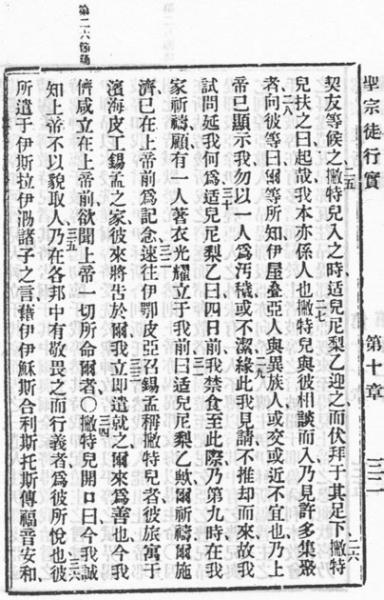 聖宗徒行實 第十章
契友等候之二五撇特兒入之時适兒尼梨乙迎之而伏拜于其足下二六撇特
兒扶之曰起哉我本亦係人也二七撇特兒與彼相談而入乃見許多集聚
者二八向彼等曰爾等所知伊屋疊亞人與異族人或交或近不宜也乃上
帝已顯示我勿以一人為汚穢或不潔二九緣此我見請不推却而來故我
試問延我何為三十适兒尼梨乙曰四日前我禁食至此際乃第九時在我
家祈禱顧有一人著衣光耀立于我前三一曰适兒尼梨乙歟爾祈禱爾施
濟已在上帝前為記念三二速往伊鄂皮亞召錫孟稱撇特兒者彼旅寓于
濱海皮工錫孟之家彼來將告於爾三三我立即遣就之爾來為善也今我
儕咸立在上帝前欲聞上帝一切所命爾者○三四撇特兒開口曰今我誠
知上帝不以貌取人三五乃在各邦中有敬畏之而行義者為彼所悅也三六彼
所遣于伊斯拉伊泐諸子之言藉伊伊穌斯合利斯托斯傳福音安和